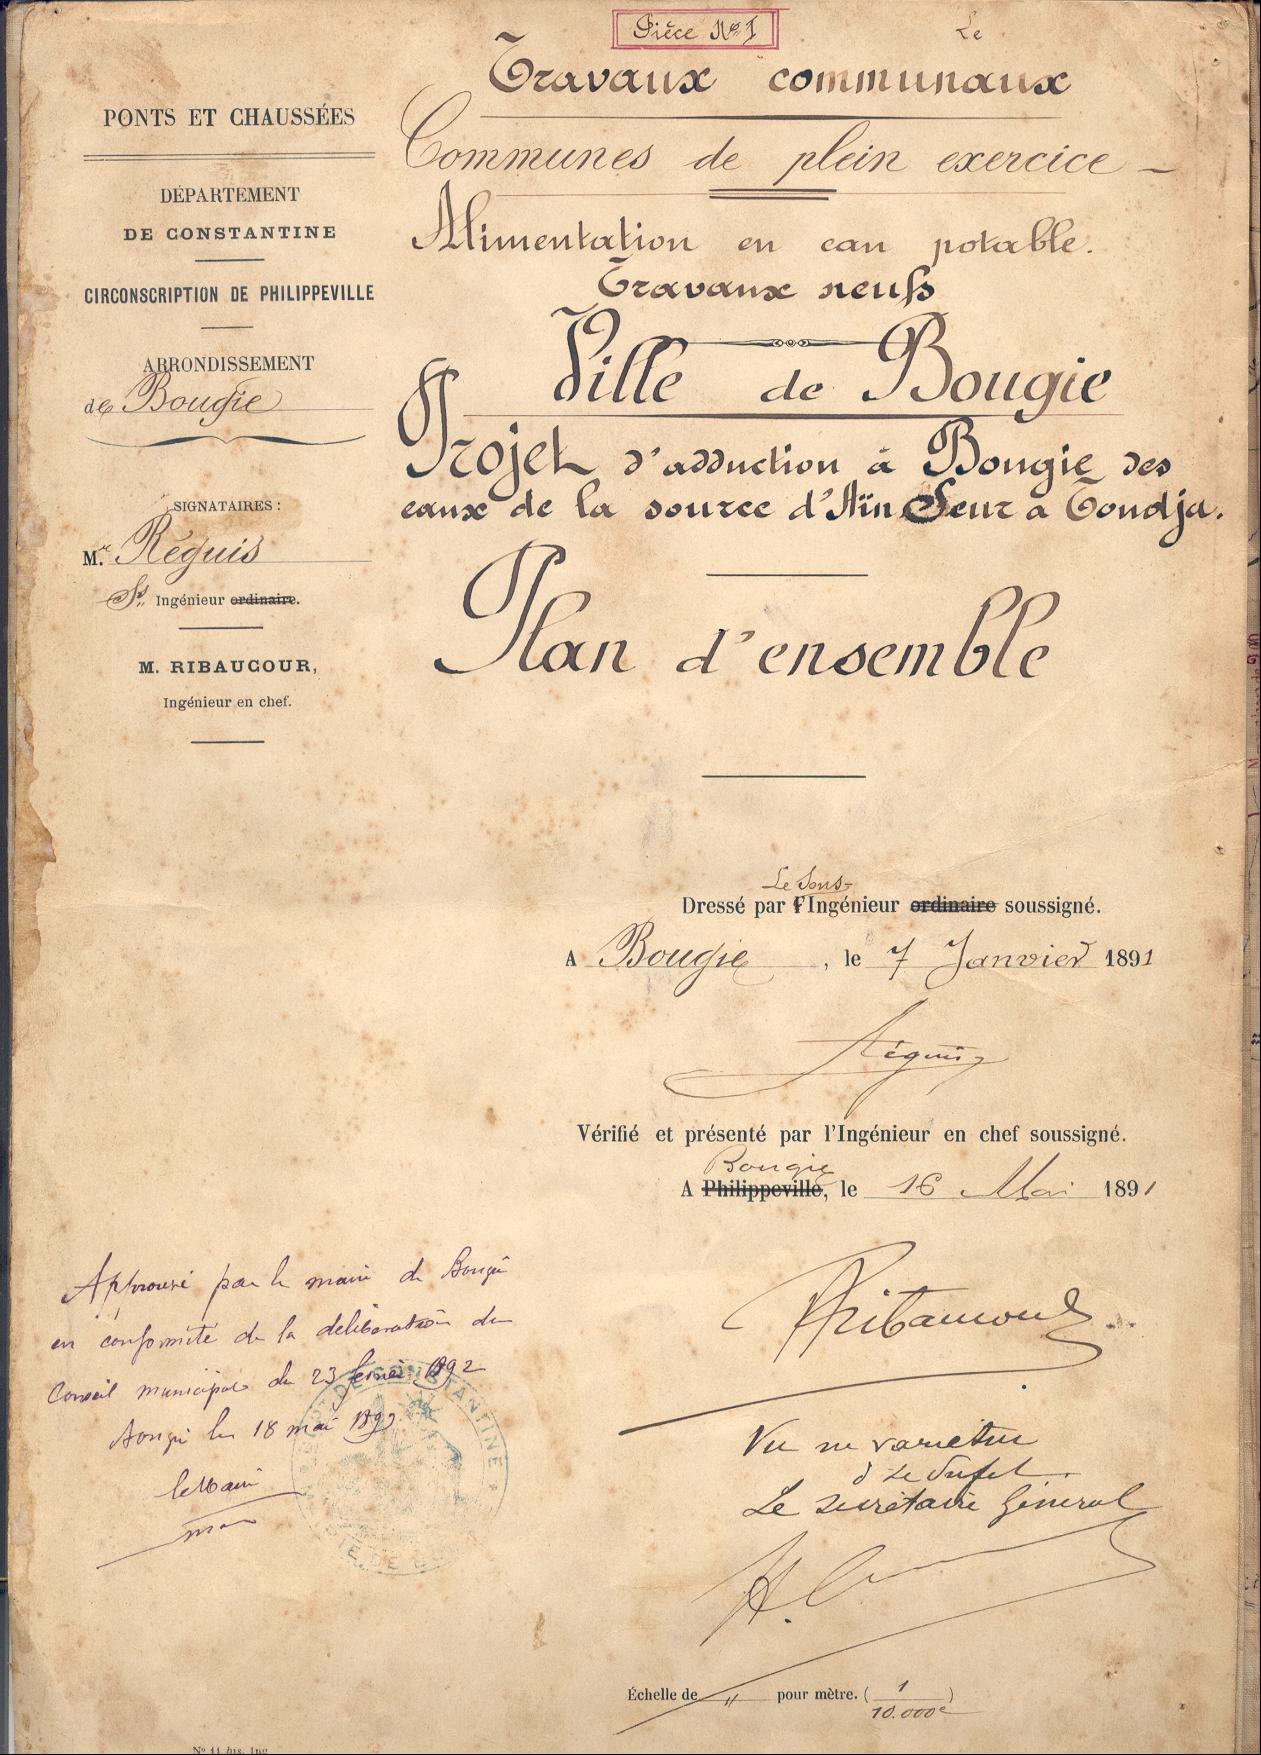 Pièce No 1
Le
Travaux communaux
PONTS ET CHAUSSÉES
Communes de plein exercice
DÉPARTEMENT
DE CONSTANTINE
Alimentation en eau potable.
CIRCONSCRIPTION DE PHILIPPEVILLE
Travaux neufs
ARRONDISSEMENT
de Bougie
Ville de Bougie
Projet d'adduction à Bougie des
eaux de la source d'Aïn Seur à Toudja.
SIGNATAIRES :
Mr. Réguis
Ss. Ingénieur ordinaire.
Plan d'ensemble
M. RIBAUCOUR,
Ingénieur en chef.
Le Sous-
Dressé par l'Ingénieur ordinaire soussigné.
A Bougie, le 7 Janvier 1891
Réguis
Vérifié et présenté par l'Ingénieur en chef soussigné.
Bougie
A Philippeville, le 16 Mai 1891
Approuvé par le maire de Bougie
en conformité de la délibération du
Conseil municipal du 23 février 1892
Bougie le 18 mai
le Maire
Ribaucour
Vu
Le Secrétaire Général
DE CONSTANTINE
Échelle de " pour mètre. (1/10.000e)
No 11 bis. Ing.